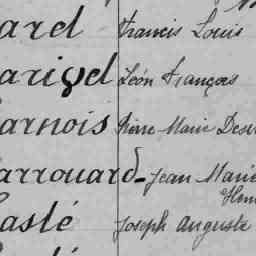 ard Francis Louis
arigel Léon François
arnois Pierre Marie
arrouard - Jean Marie
aslé Joseph Auguste